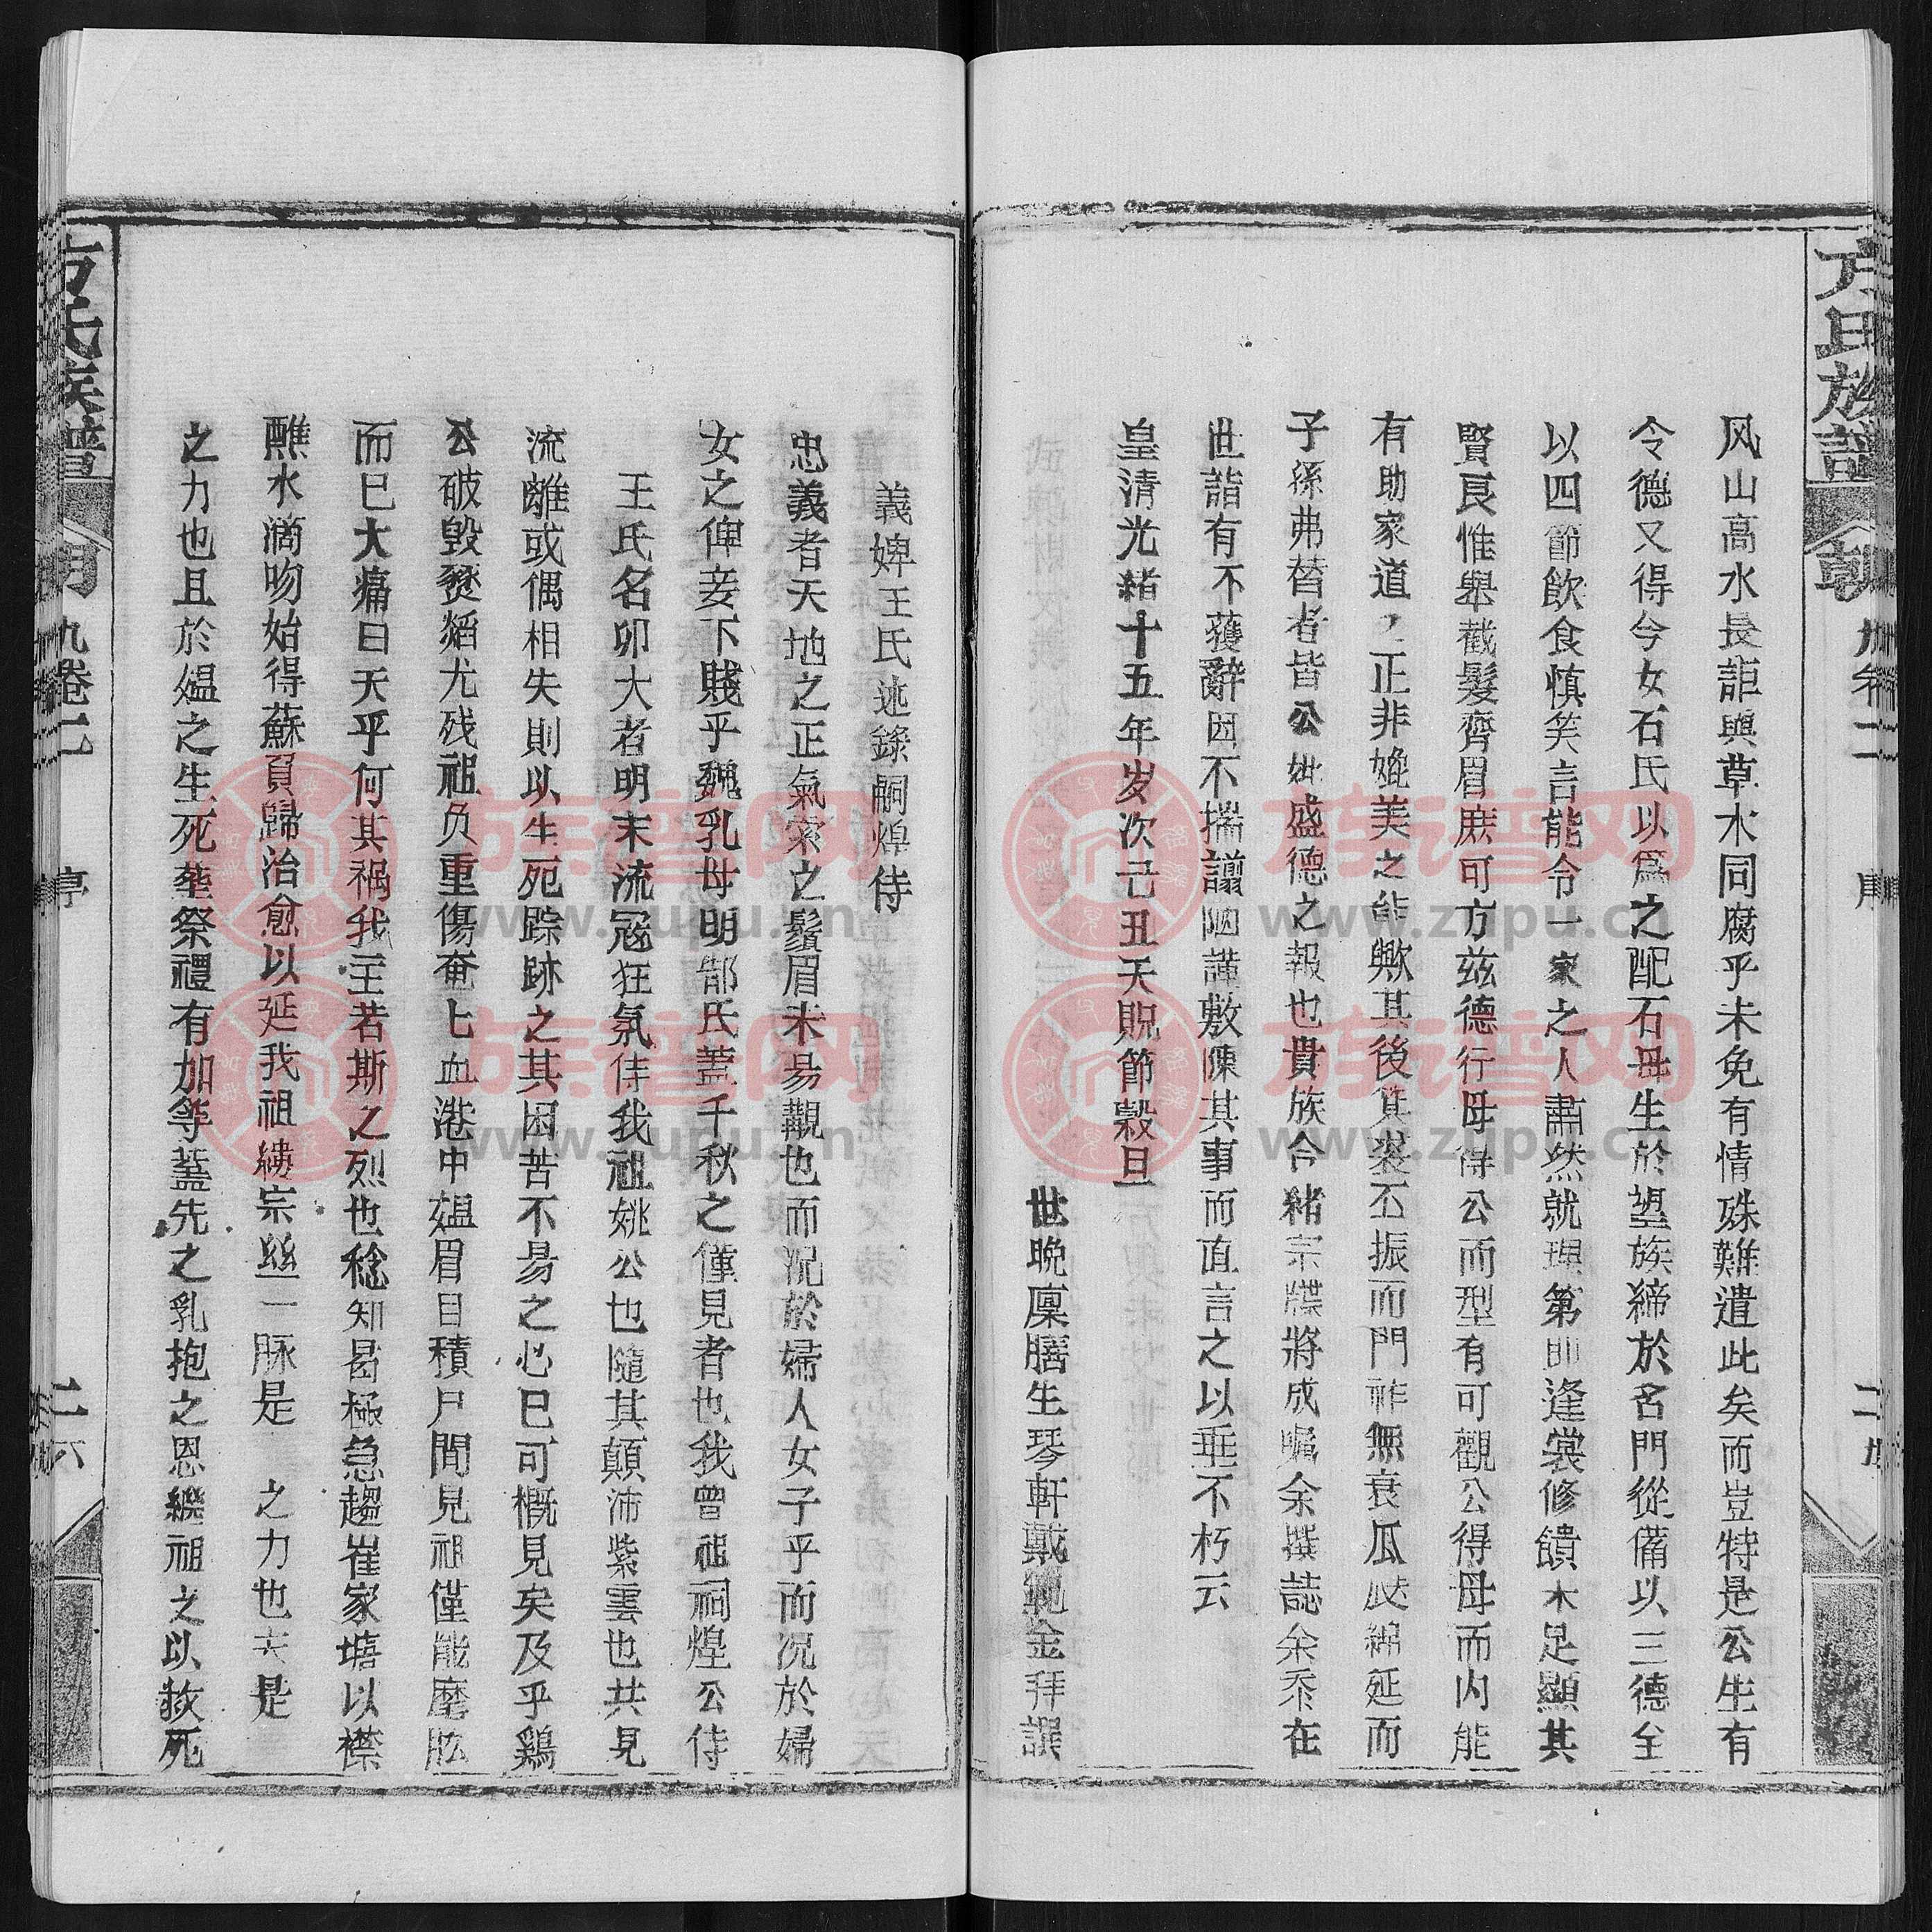 方氏族譜
卷二
序
风山高水長詎與草木同腐乎未免有情殊難遣此矣而豈特是公生有
令德又得今女石氏以爲之配石母生於望族締於名門從備以三德全
以四節飲食慎笑言能令一家之人肅然就理第即逢裳修饋未足顯其
賢良惟舉截髮齊眉庶可方玆德行母得公而型有可觀公得母而內能
有助家道之正非媲美之能歟其後箕裘丕振而門祚無衰瓜瓞綿延而
子孫弗替者皆公妣盛德之報也貴族今緒宗牒將成囑余撰誌余忝在
世誼有不獲辭因不揣譾陋謹敷陳其事而直言之以垂不朽云
皇清光緒十五年岁次己丑天貺節穀旦
世晚廩膳生琴軒戴範金拜譔
義婢王氏述錄嗣焯侍
忠義者天地之正氣索之鬚眉未易觀也而況於婦人女子乎而况於婦
女之俾妾下賤乎魏乳母明郜氏蓋千秋之僅見者也我曾祖祠煌公侍
王氏名卯大者明末流寇狂氛侍我祖姚公也隨其顛沛紫雲也共見
流離或偶相失則以生死踪跡之其困苦不易之心已可概見矣及乎鷄
公破毁燹熖尤残祖负重傷奄七血港中媼眉目積尸間見祖僅能麾肱
而已大痛曰天乎何其祸我主若斯之烈也稔知曷極急趨崔家塘以襟
醮水滴吻始得蘇負歸治愈以延我祖縷宗絲一脉是 之力也夫是
之力也且於媼之生死葬祭禮有加等蓋先之乳抱之恩繼祖之以救死
方氏族譜
九卷二
序
二六